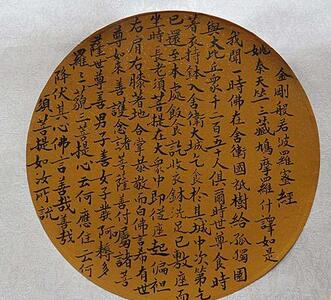 金剛般若波羅蜜經
姚秦天竺三藏鳩摩羅什譯如是
我聞一時佛在舍衛國祇樹給孤獨園
與大比丘眾千二百五十人俱爾時世尊食時
著衣持鉢入舍衛大城乞食於其城中次第乞
已還至本處飯食訖收衣鉢洗足已敷座而
坐時長老須菩提在大眾中即從座起偏袒
右肩右膝著地合掌恭敬而白佛言希有世
尊如來善護念諸菩薩善付囑諸菩
薩世尊善男子善女子發阿耨多
羅三藐三菩提心云何應住云何
降伏其心佛言善哉善哉
須菩提如汝所說